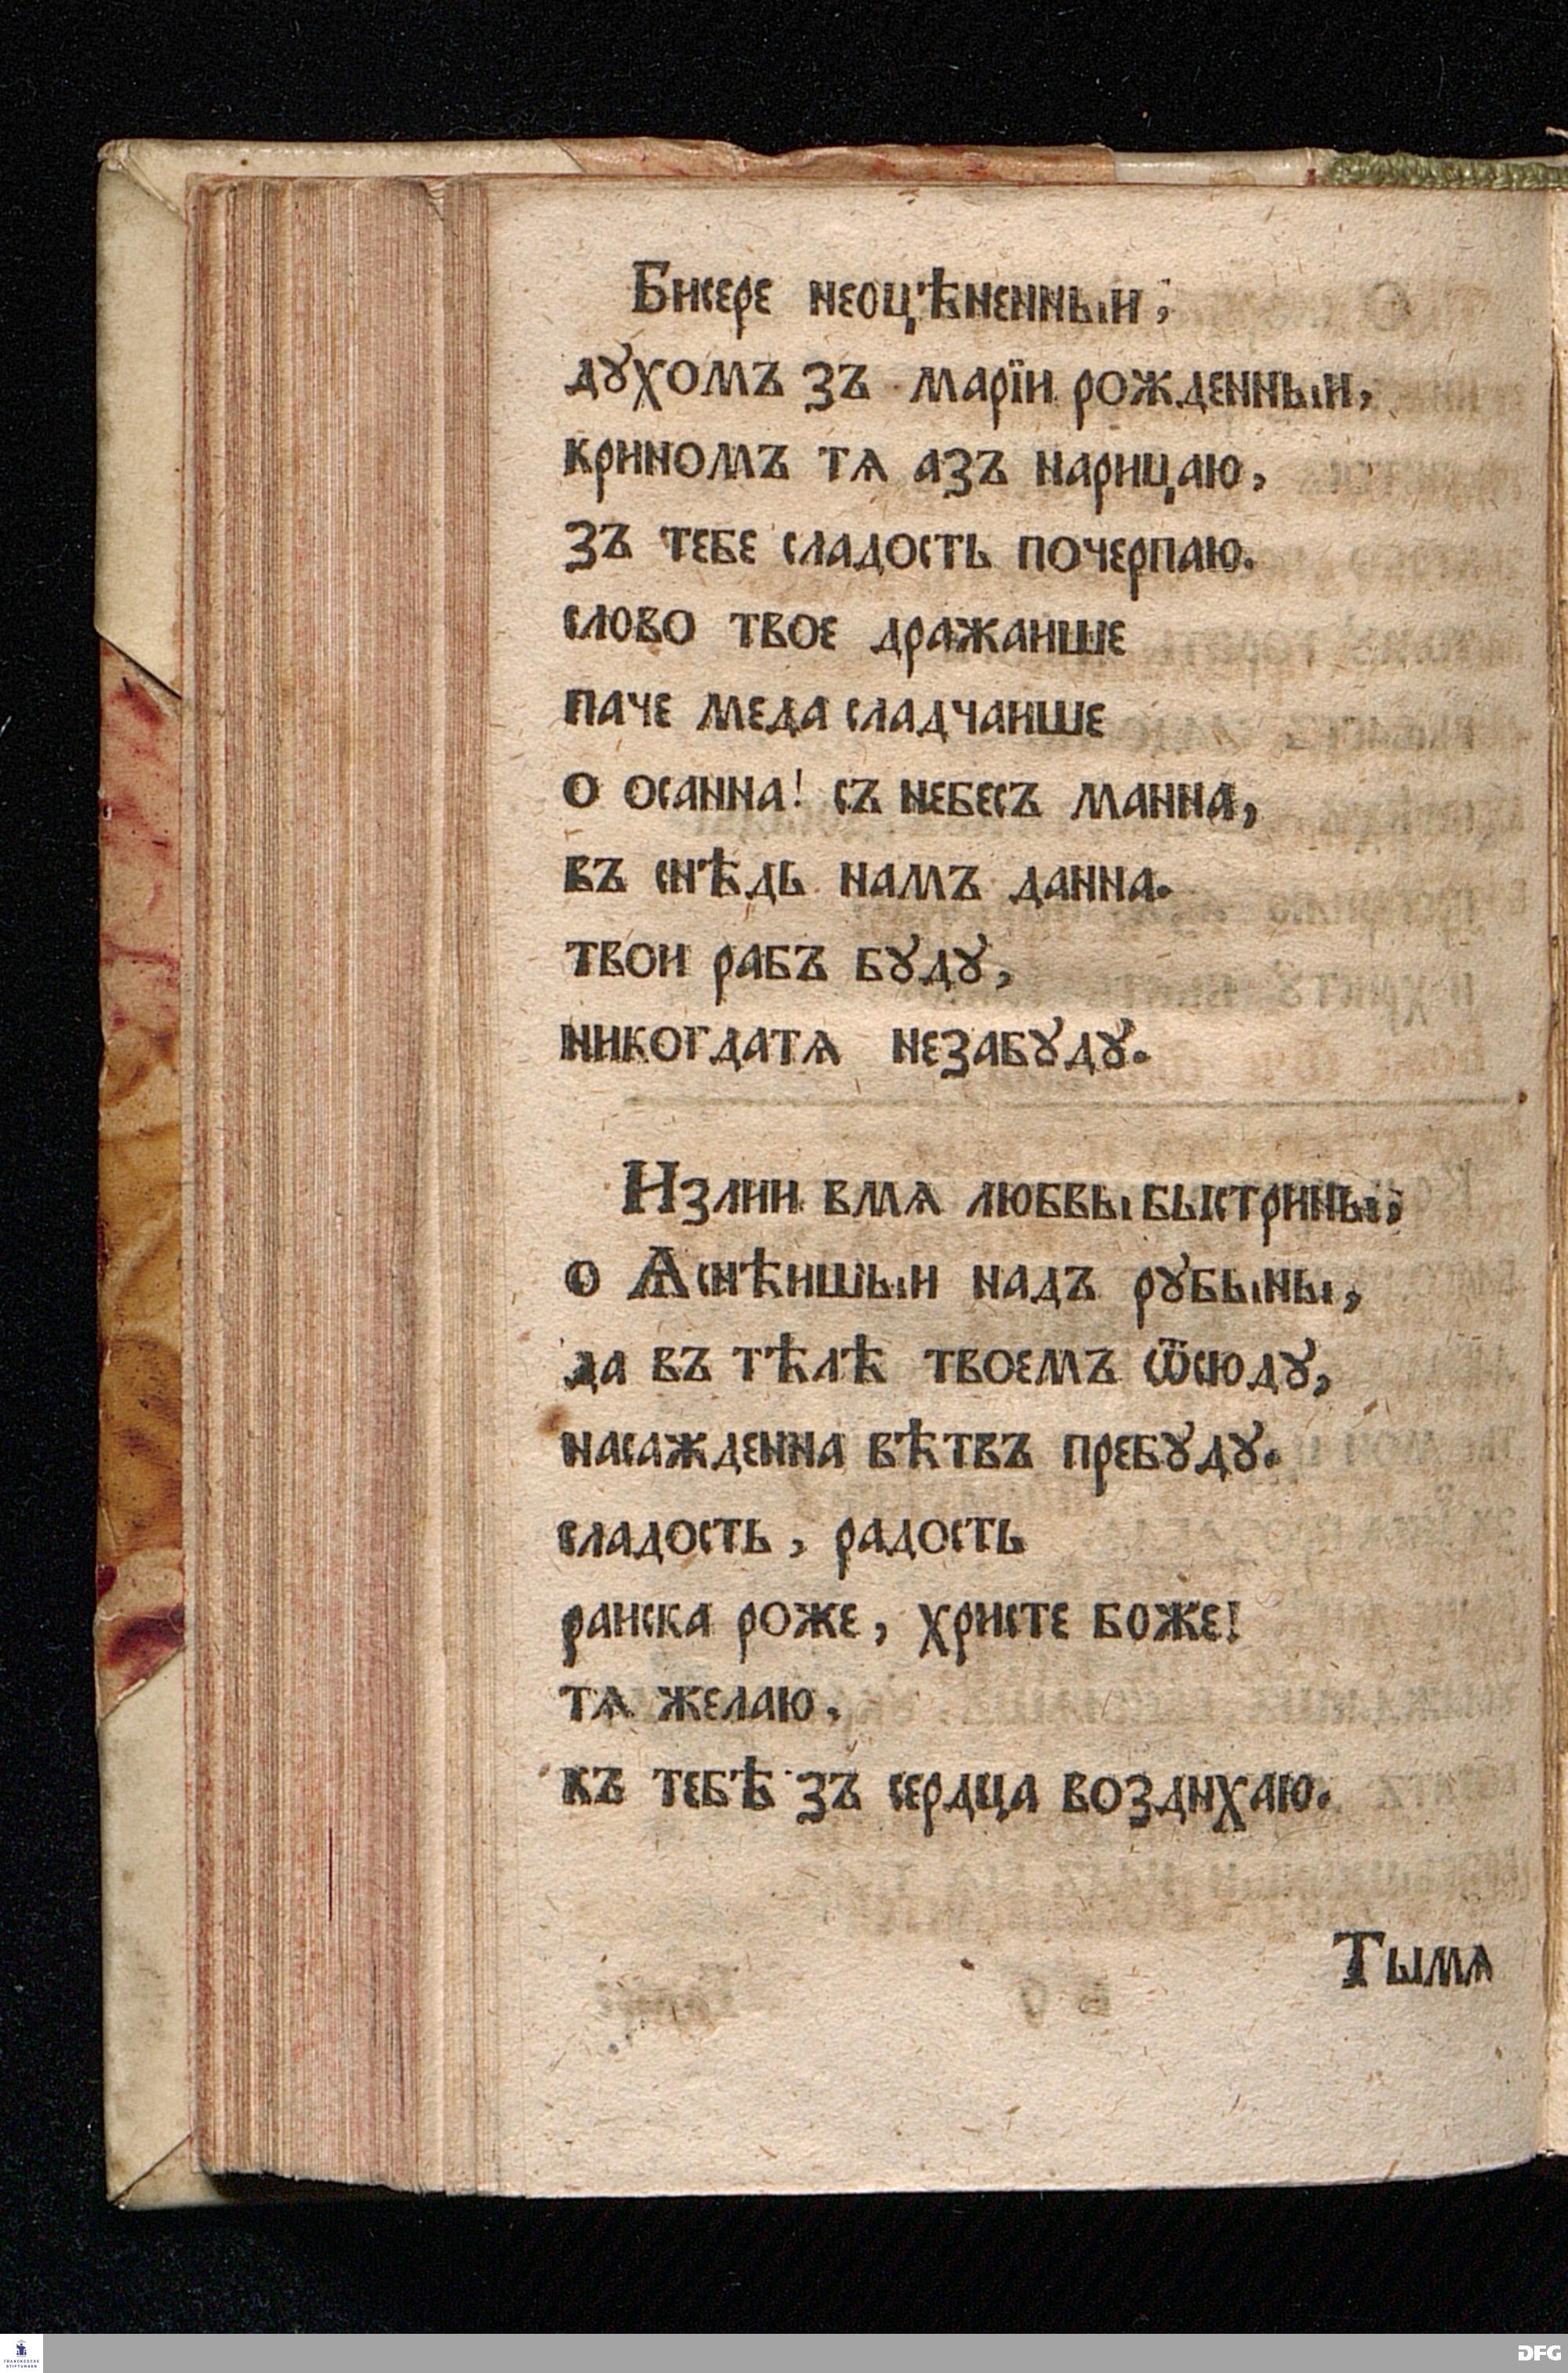 Бисере неоцѣненныи,
дꙋхомъ зъ марїи рожденныи,
криномъ тѧ азъ нарицаю,
зъ тебе сладость почерпаю.
слово твое дражаише
паче меда сладчаише
о осанна! съ небесъ манна,
въ снѣдь намъ данна.
твои рабъ бꙋдꙋ,
никогдатѧ незабꙋдꙋ.
Излии вмѧ любвы быстрины,
о Ѧснѣишыи надъ рꙋбыны,
да въ тѣлѣ твоемъ ѿсюдꙋ,
насажденна вѣтвъ пребꙋдꙋ.
сладость, радость
раиска роже, христе боже!
тѧ желаю,
къ тебѣ зъ сердца воздихаю.
Тымѧ
FRANCKESCHE STIFTUNGEN
DFG